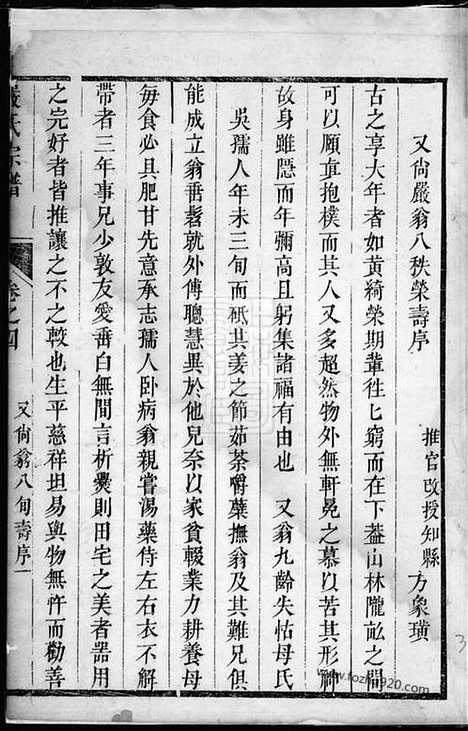 又尙嚴翁八秩榮壽序
推官改授知縣 方象璜
古之享大年者如黃綺榮期輩徃匕窮而在下葢山林隴畝之間
可以頤眞抱樸而其人又多超然物外無軒冕之慕以苦其形神
故身雖隱而年彌高且躬集諸福有由也 又翁九齡失怙母氏
吳孺人年未三旬而秪其姜之節茹荼嚼蘗撫翁及其難兄俱
能成立翁垂髫就外傅聰慧異於他兒奈以家貧輟業力耕養母
每食必具肥甘先意承志孺人卧病翁親嘗湯藥侍左右衣不解
帶者三年事兄少敦友愛畨白無間言析㸑則田宅之美者器用
之完好者皆推讓之不之較也生平慈祥坦易與物無忤而勸善
嚴氏宗譜
卷之四
又尙翁八旬壽序一
www.fozhu920.com